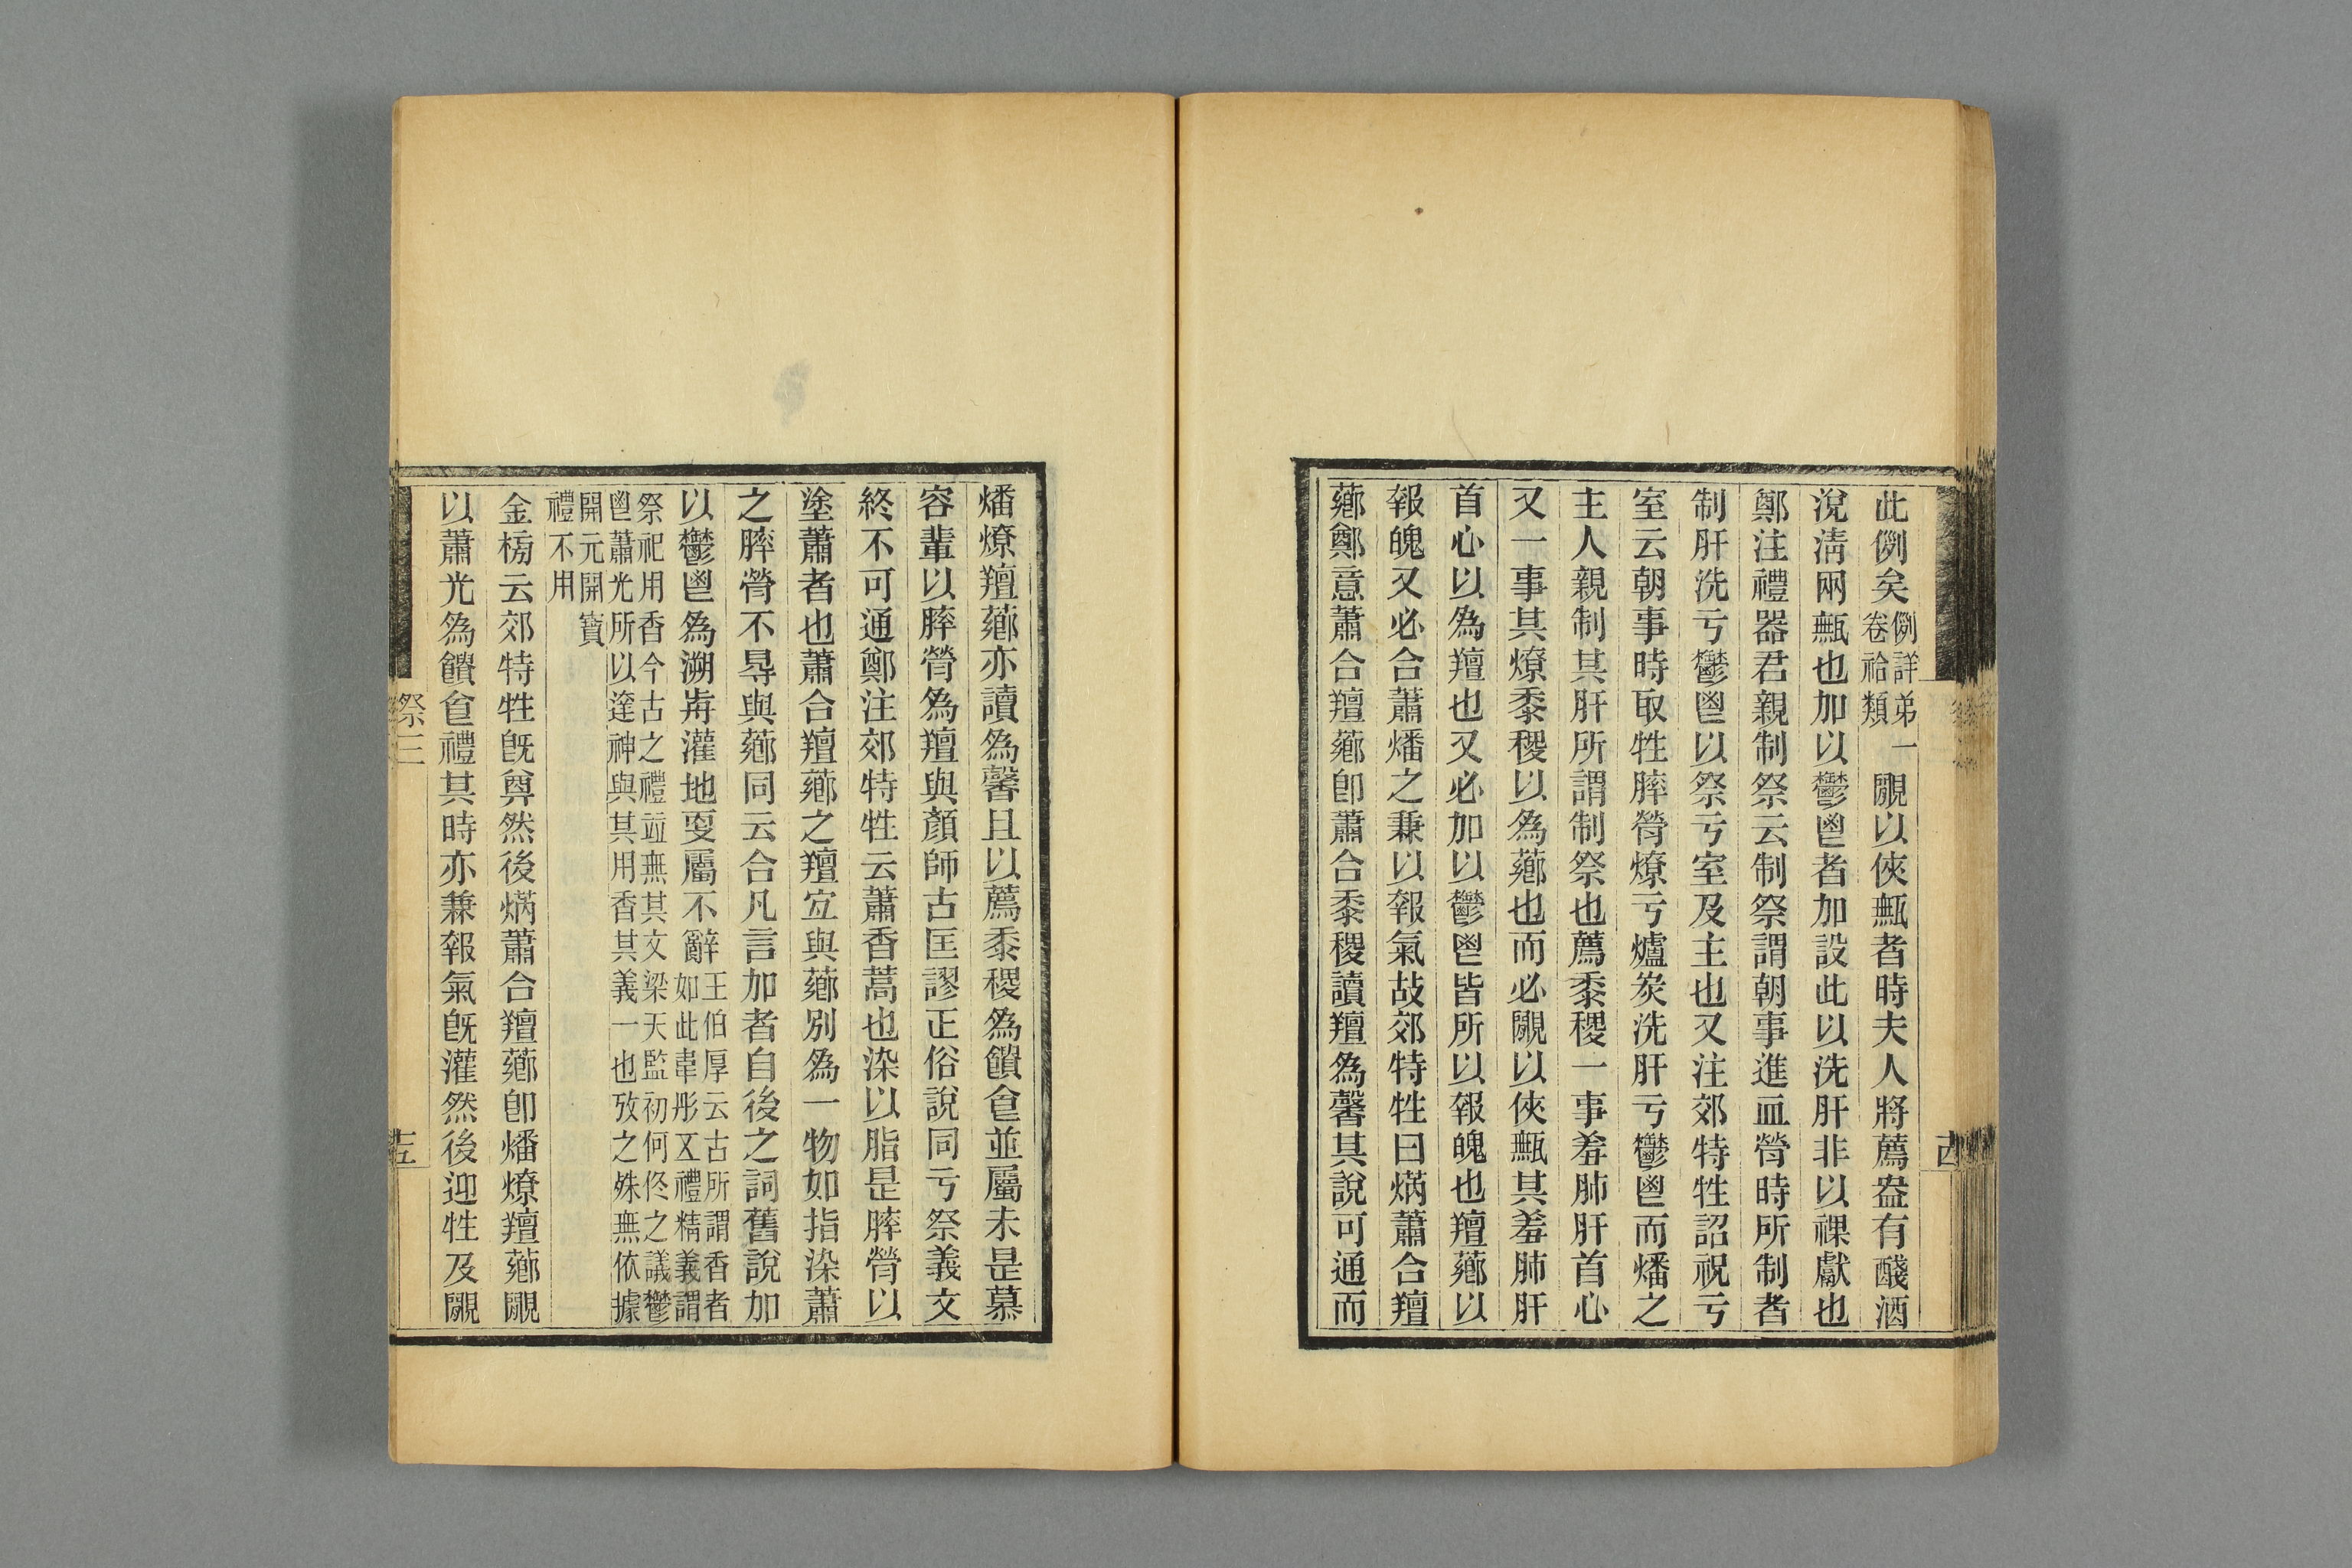 此例矣例詳弟一卷祫類覸以俠甒者時夫人將薦盎有醆酒
涚淸兩甒也加以鬱鬯者加設此以洗肝非以祼獻也
鄭注禮器君親制祭云制祭謂朝事進血膋時所制者
制肝洗亏鬱鬯以祭亏室及主也又注郊特牲詔祝亏
室云朝事時取牲膟膋燎亏爐炭洗肝亏鬱鬯而燔之
主人親制其肝所謂制祭也薦黍稷一事羞肺肝首心
又一事其燎黍稷以爲薌也而必覸以俠甒其羞肺肝
首心以爲羶也又必加以鬱鬯皆所以報魄也羶薌以
報魄又必合蕭燔之兼以報氣故郊特牲曰焫蕭合羶
薌鄭意蕭合羶薌卽蕭合黍稷讀羶爲馨其說可通而
燔燎羶薌亦讀爲馨且以薦黍稷爲饋㑹並屬未是慕
容輩以膟膋爲羶與顏師古匡謬正俗說同亏祭義文
終不可通鄭注郊特牲云蕭香蒿也染以脂是膟膋以
塗蕭者也蕭合羶薌之羶宜與薌別爲一物如指染蕭
之膟膋不㝵與薌同云合凡言加者自後之詞舊說加
以鬱鬯爲溯歬灌地㪅屬不辭王伯厚云古所謂香者如此韋彤五禮精義謂
祭祀用香今古之禮竝無其文梁天監初何佟之議鬱鬯蕭光所以達神與其用香其義一也攷之殊無依據
開元開寶禮不用
金榜云郊特牲旣奠然後焫蕭合羶薌卽燔燎羶薌覸
以蕭光爲饋食禮其時亦兼報氣旣灌然後迎牲及覸
祭三